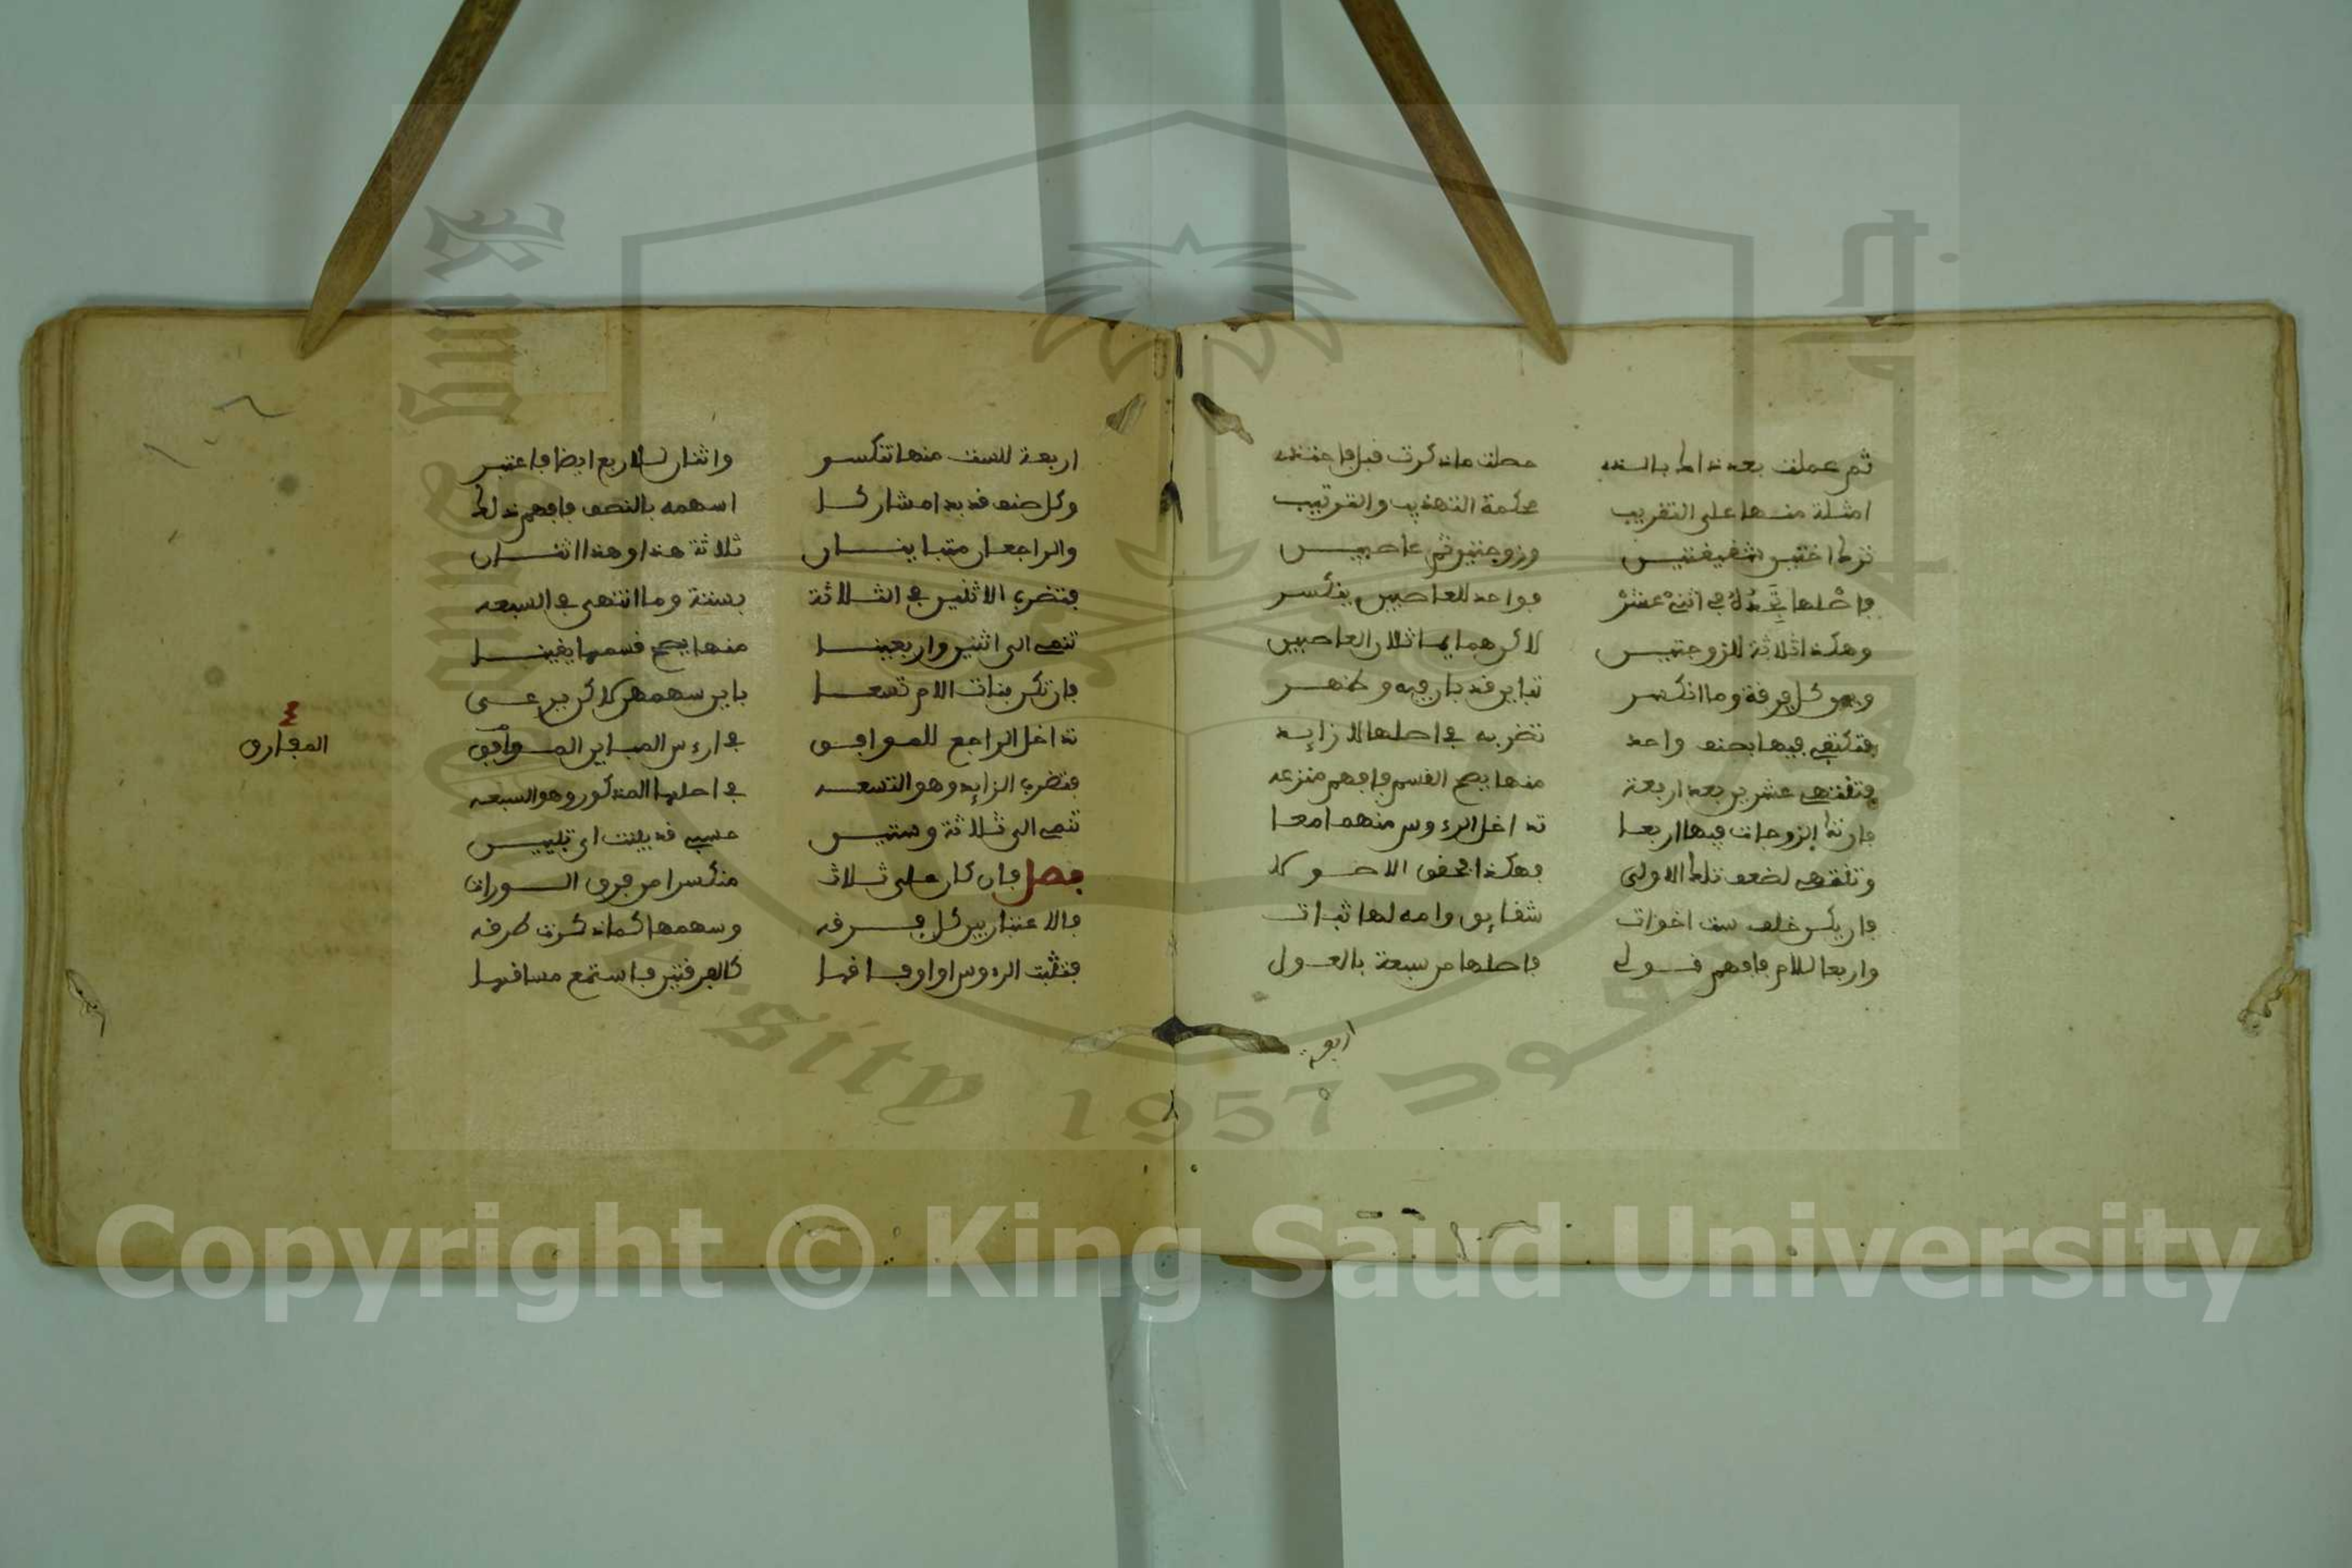 ثم عملت بعد ذاك بالسند حصلت ما ذكرت قبل فاعتمد
امثلة منها على التقريب محكمة التهذيب والترتيب
ترك اختين شقيقتين وزوجتين ثم عاصبين
فاصلها تجده في اثني عشر فواحد للعاصبين ينكسر
وهكذا ثلاثة للزوجتين لاكن هما يماثلان العاصبين
وبين كل فرقة وما انكسر تباين قد بان فيه وظهر
فتكتفي فيها بصنف واحد تضربه في اصلها لا زايد
فتنتهي عشرين بعد اربعة منها يصح القسم فافهم منزعه
فان تك الزوجات فيها اربعا تداخل الرءوس منهما معا
وتنتهي لضعف تلك الاولى فهكذا محقق الاصولا
فان يكن خلف ست اخوات شقايق وامه لها ثبات
واربعا للام فافهم قولي فاصلها من سبعة بالعول
اربعة
اربعة للست منها تنكسر واثنان للاربع ايضا فاعتبر
وكل صنف قد بدا مشاركا اسهمه بالنصف فافهم ذلكا
والراجعان متباينان ثلاثة هذا وهذا اثنان
فتضرب الاثنين في الثلاثة بستة وما انتهى في السبعه
تنهى الى اثنين واربعينا منها يصح قسمها يقينا
فان تكن بنات الام تسعا باين سهمهن لاكن يرعى
تداخل الراجع للموافق في ارءس المباين الموافق
المفارق
فتضرب الزايد وهو التسعه في اصلها المذكور وهو السبعه
تنهى الى ثلاثة وستين حسبي قد بينت اي تبيين
فصل فان كان على ثلاث منكسرا من فرق الوراث
فالاعتبار بين كل فرقه وسهمها كما ذكرت طرقه
فتثبت الرءوس او اوفاقها كالفرقتين فاستمع مساقها
Copyright © King Saud University
1957